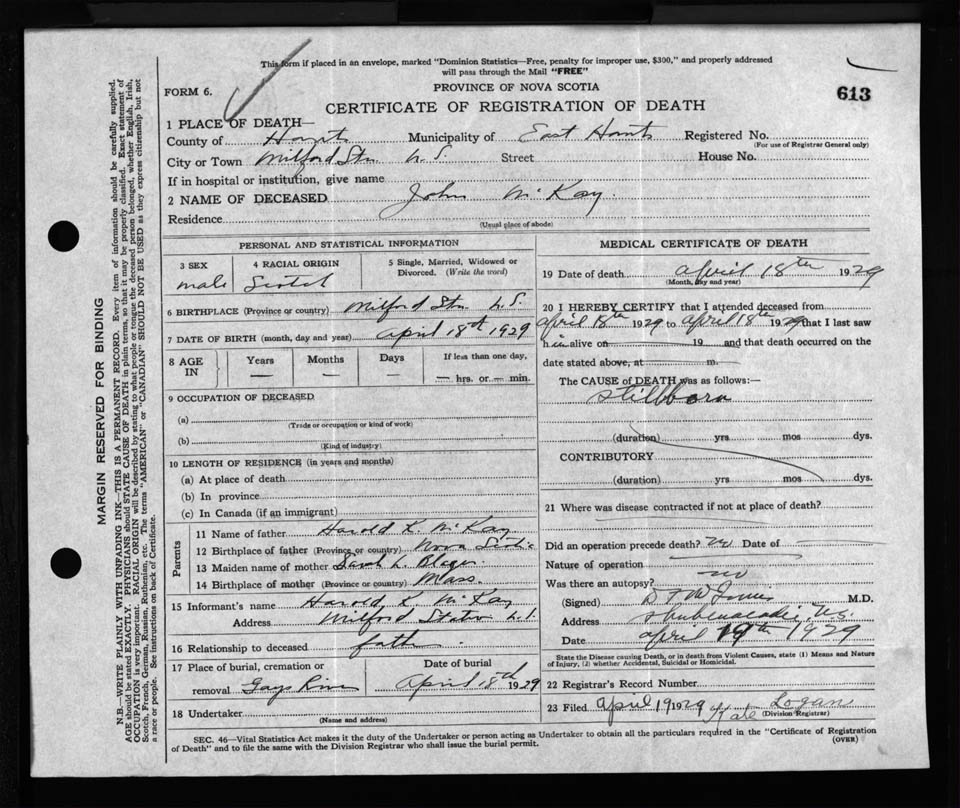 This form if placed in an envelope, marked "Dominion Statistics—Free, penalty for improper use, $300," and properly addressed
will pass through the Mail "FREE"
FORM 6.
PROVINCE OF NOVA SCOTIA
613
CERTIFICATE OF REGISTRATION OF DEATH
1 PLACE OF DEATH—
County of Hants Municipality of East Hants Registered No.
(For use of Registrar General only)
City or Town Milford Stn N.S. Street House No.
If in hospital or institution, give name
2 NAME OF DECEASED John McKay
Residence
(Usual place of abode)
PERSONAL AND STATISTICAL INFORMATION
3 SEX
male
4 RACIAL ORIGIN
Scotch
5 Single, Married, Widowed or
Divorced. (Write the word)
6 BIRTHPLACE (Province or country) Milford Stn N.S.
7 DATE OF BIRTH (month, day and year) April 18th 1929
8 AGE
IN
Years
—
Months
—
Days
—
If less than one day,
— hrs. or — min.
9 OCCUPATION OF DECEASED
(a)
(Trade or occupation or kind of work)
(b)
(Kind of industry)
10 LENGTH OF RESIDENCE (in years and months)
(a) At place of death
(b) In province
(c) In Canada (if an immigrant)
Parents
11 Name of father Harold K. McKay
12 Birthplace of father (Province or country) Nova Scotia
13 Maiden name of mother Sarah L.
14 Birthplace of mother (Province or country) Mass.
15 Informant's name Harold K. McKay
Address Milford Station N.S.
16 Relationship to deceased father
17 Place of burial, cremation or
removal Gays River
Date of burial
April 18th 1929
18 Undertaker
(Name and address)
MEDICAL CERTIFICATE OF DEATH
19 Date of death April 18th 1929
(Month, day and year)
20 I HEREBY CERTIFY that I attended deceased from
April 18th 1929 to April 18th 1929 that I last saw
h alive on 19 and that death occurred on the
date stated above, at m.
The CAUSE of DEATH was as follows:—
Stillborn
(duration) yrs mos dys.
CONTRIBUTORY
(duration) yrs mos dys.
21 Where was disease contracted if not at place of death?
Did an operation precede death? no Date of
Nature of operation
Was there an autopsy? no
(Signed) M.D.
Address Shubenacadie, N.S.
Date April 19th 1929
State the Disease causing Death, or in death from Violent Causes, state (1) Means and Nature
of Injury, (2) whether Accidental, Suicidal or Homicidal.
22 Registrar's Record Number
23 Filed April 19 1929 Kate Logan
(Division Registrar)
SEC. 46—Vital Statistics Act makes it the duty of the Undertaker or person acting as Undertaker to obtain all the particulars required in the "Certificate of Registration
of Death" and to file the same with the Division Registrar who shall issue the burial permit.
(OVER)
MARGIN RESERVED FOR BINDING
N.B.—WRITE PLAINLY WITH UNFADING INK—THIS IS A PERMANENT RECORD. Every item of information should be carefully supplied.
AGE should be stated EXACTLY. PHYSICIANS should STATE CAUSE OF DEATH in plain terms, so that it may be properly classified. Exact statement of
OCCUPATION is very important. RACIAL ORIGIN will be described by stating to what people or tongue the deceased person belonged, whether English, Irish,
Scotch, French, German, Russian, Ruthenian, etc. The terms "AMERICAN" or "CANADIAN" SHOULD NOT BE USED as they express citizenship but not
a race or people. See instructions on back of Certificate.